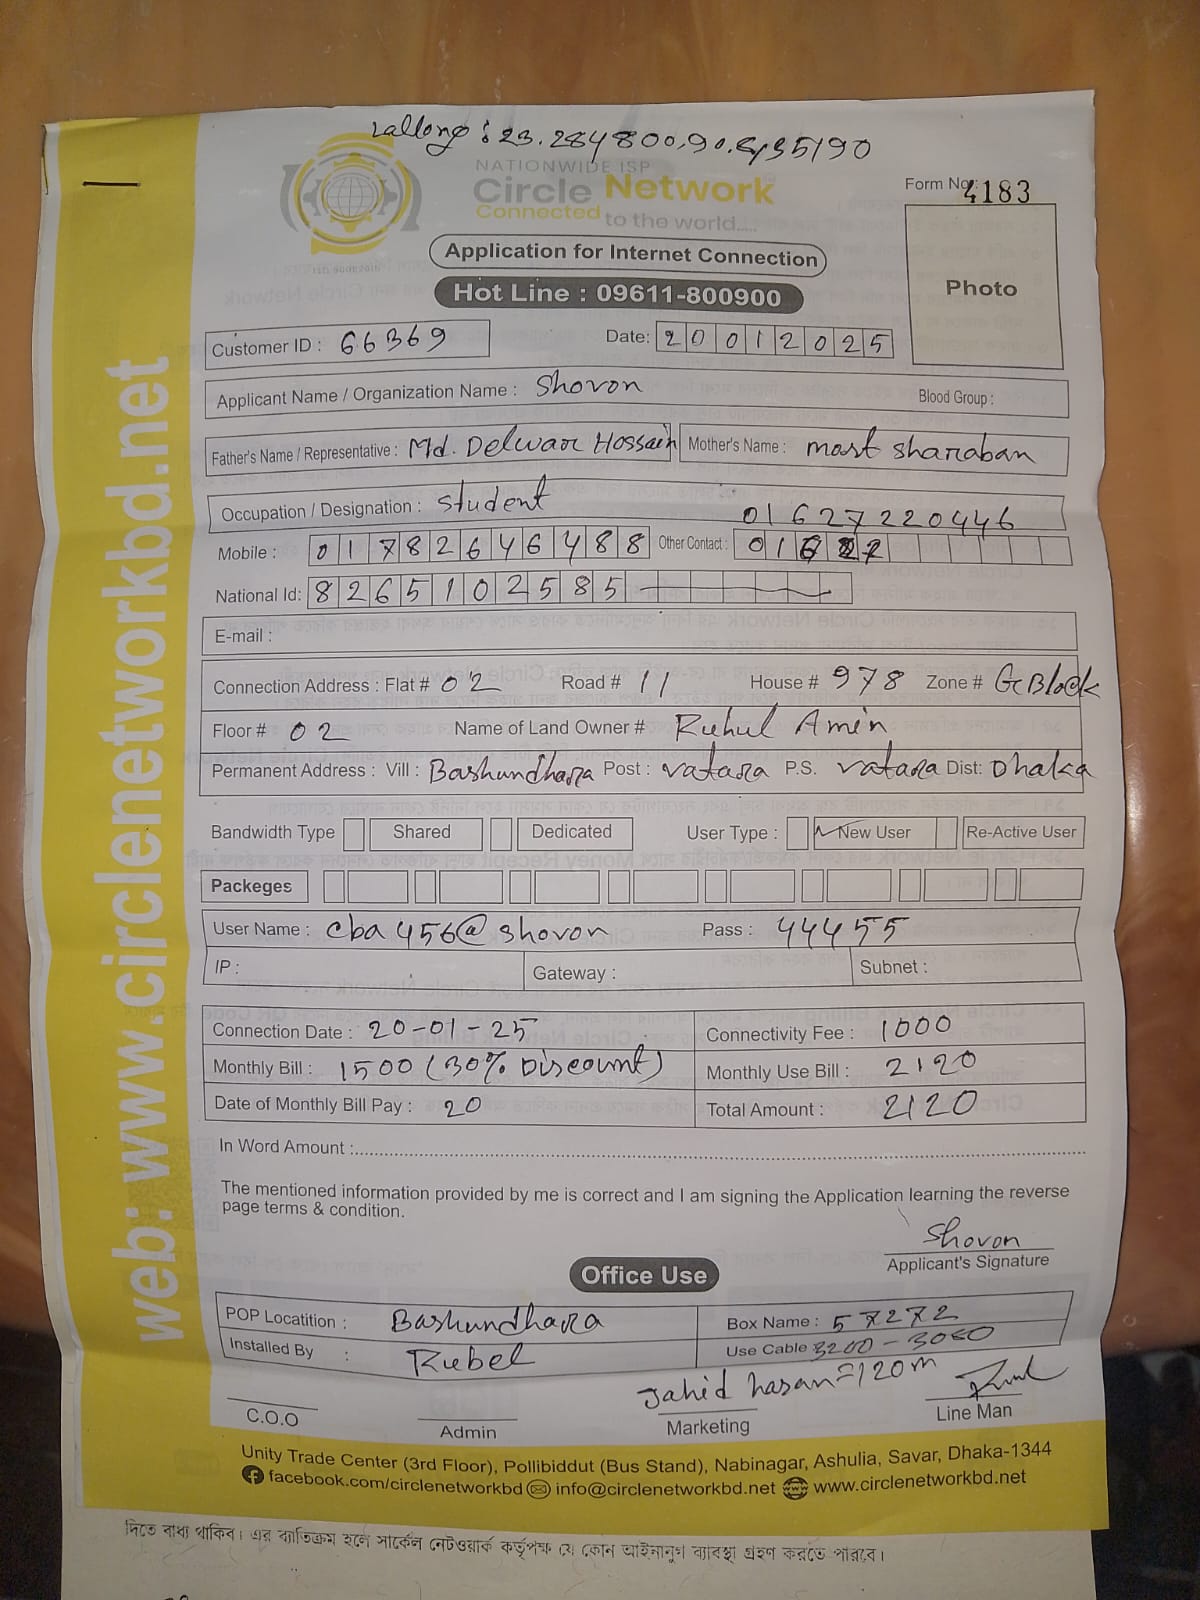 Lallong : 23.284800,90.435190
NATIONWIDE ISP
Circle Network
Connected to the world.....
Form No.: 4183
Application for Internet Connection
Hot Line : 09611-800900
Photo
Customer ID : 66369 Date: 20012025
Applicant Name / Organization Name : Shovon Blood Group :
Father's Name / Representative : Md. Delwar Hossain Mother's Name : most sharaban
Occupation / Designation : student
01627220446
Mobile : 01782646488 Other Contact : 01627
National Id: 8265102585
E-mail :
Connection Address : Flat # 02 Road # 11 House # 978 Zone # G Block
Floor # 02 Name of Land Owner # Ruhul Amin
Permanent Address : Vill : Bashundhara Post : vatara P.S. vatara Dist: Dhaka
Bandwidth Type Shared Dedicated User Type : New User Re-Active User
Packeges
User Name : cba456@shovon Pass : 44455
IP : Gateway : Subnet :
Connection Date : 20-01-25 Connectivity Fee : 1000
Monthly Bill : 1500 (30% Discount) Monthly Use Bill : 2120
Date of Monthly Bill Pay : 20 Total Amount : 2120
In Word Amount :
The mentioned information provided by me is correct and I am signing the Application learning the reverse
page terms & condition.
Shovon
Applicant's Signature
Office Use
POP Locatition : Bashundhara Box Name : 57272
Installed By : Rubel Use Cable 3200-3080
Jahid hasan=120m
C.O.O Admin Marketing Line Man
Unity Trade Center (3rd Floor), Pollibiddut (Bus Stand), Nabinagar, Ashulia, Savar, Dhaka-1344
facebook.com/circlenetworkbd info@circlenetworkbd.net www.circlenetworkbd.net
web: www.circlenetworkbd.net
দিতে বাধ্য থাকিব। এর ব্যতিক্রম হলে সার্কেল নেটওয়ার্ক কর্তৃপক্ষ যে কোন আইনানুগ ব্যবস্থা গ্রহণ করতে পারবে।